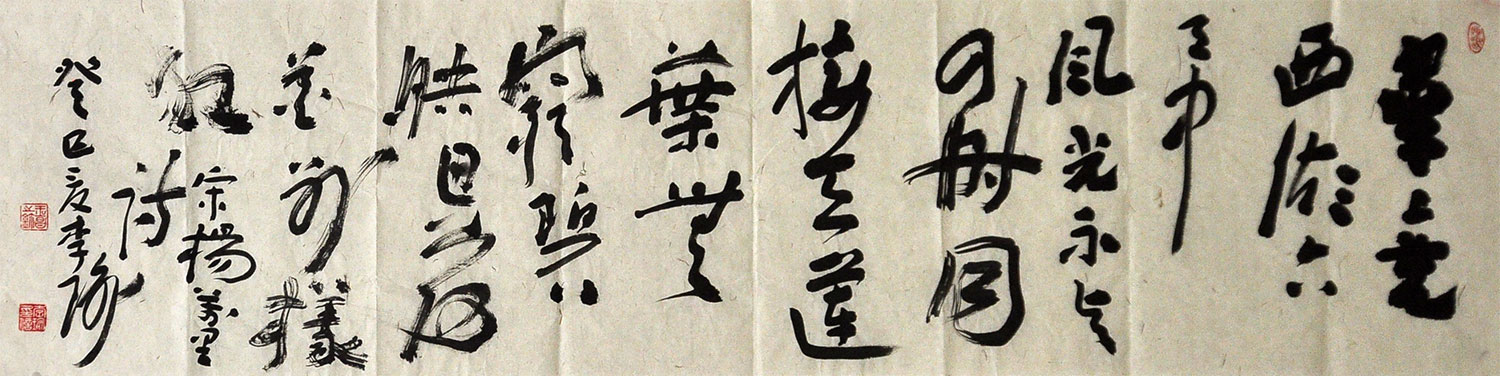 畢竟
西湖六
月中
風光不与
四時同
接天蓮
葉無
窮碧
映日荷
花别樣
紅
宋楊萬里
詩
癸巳夏李